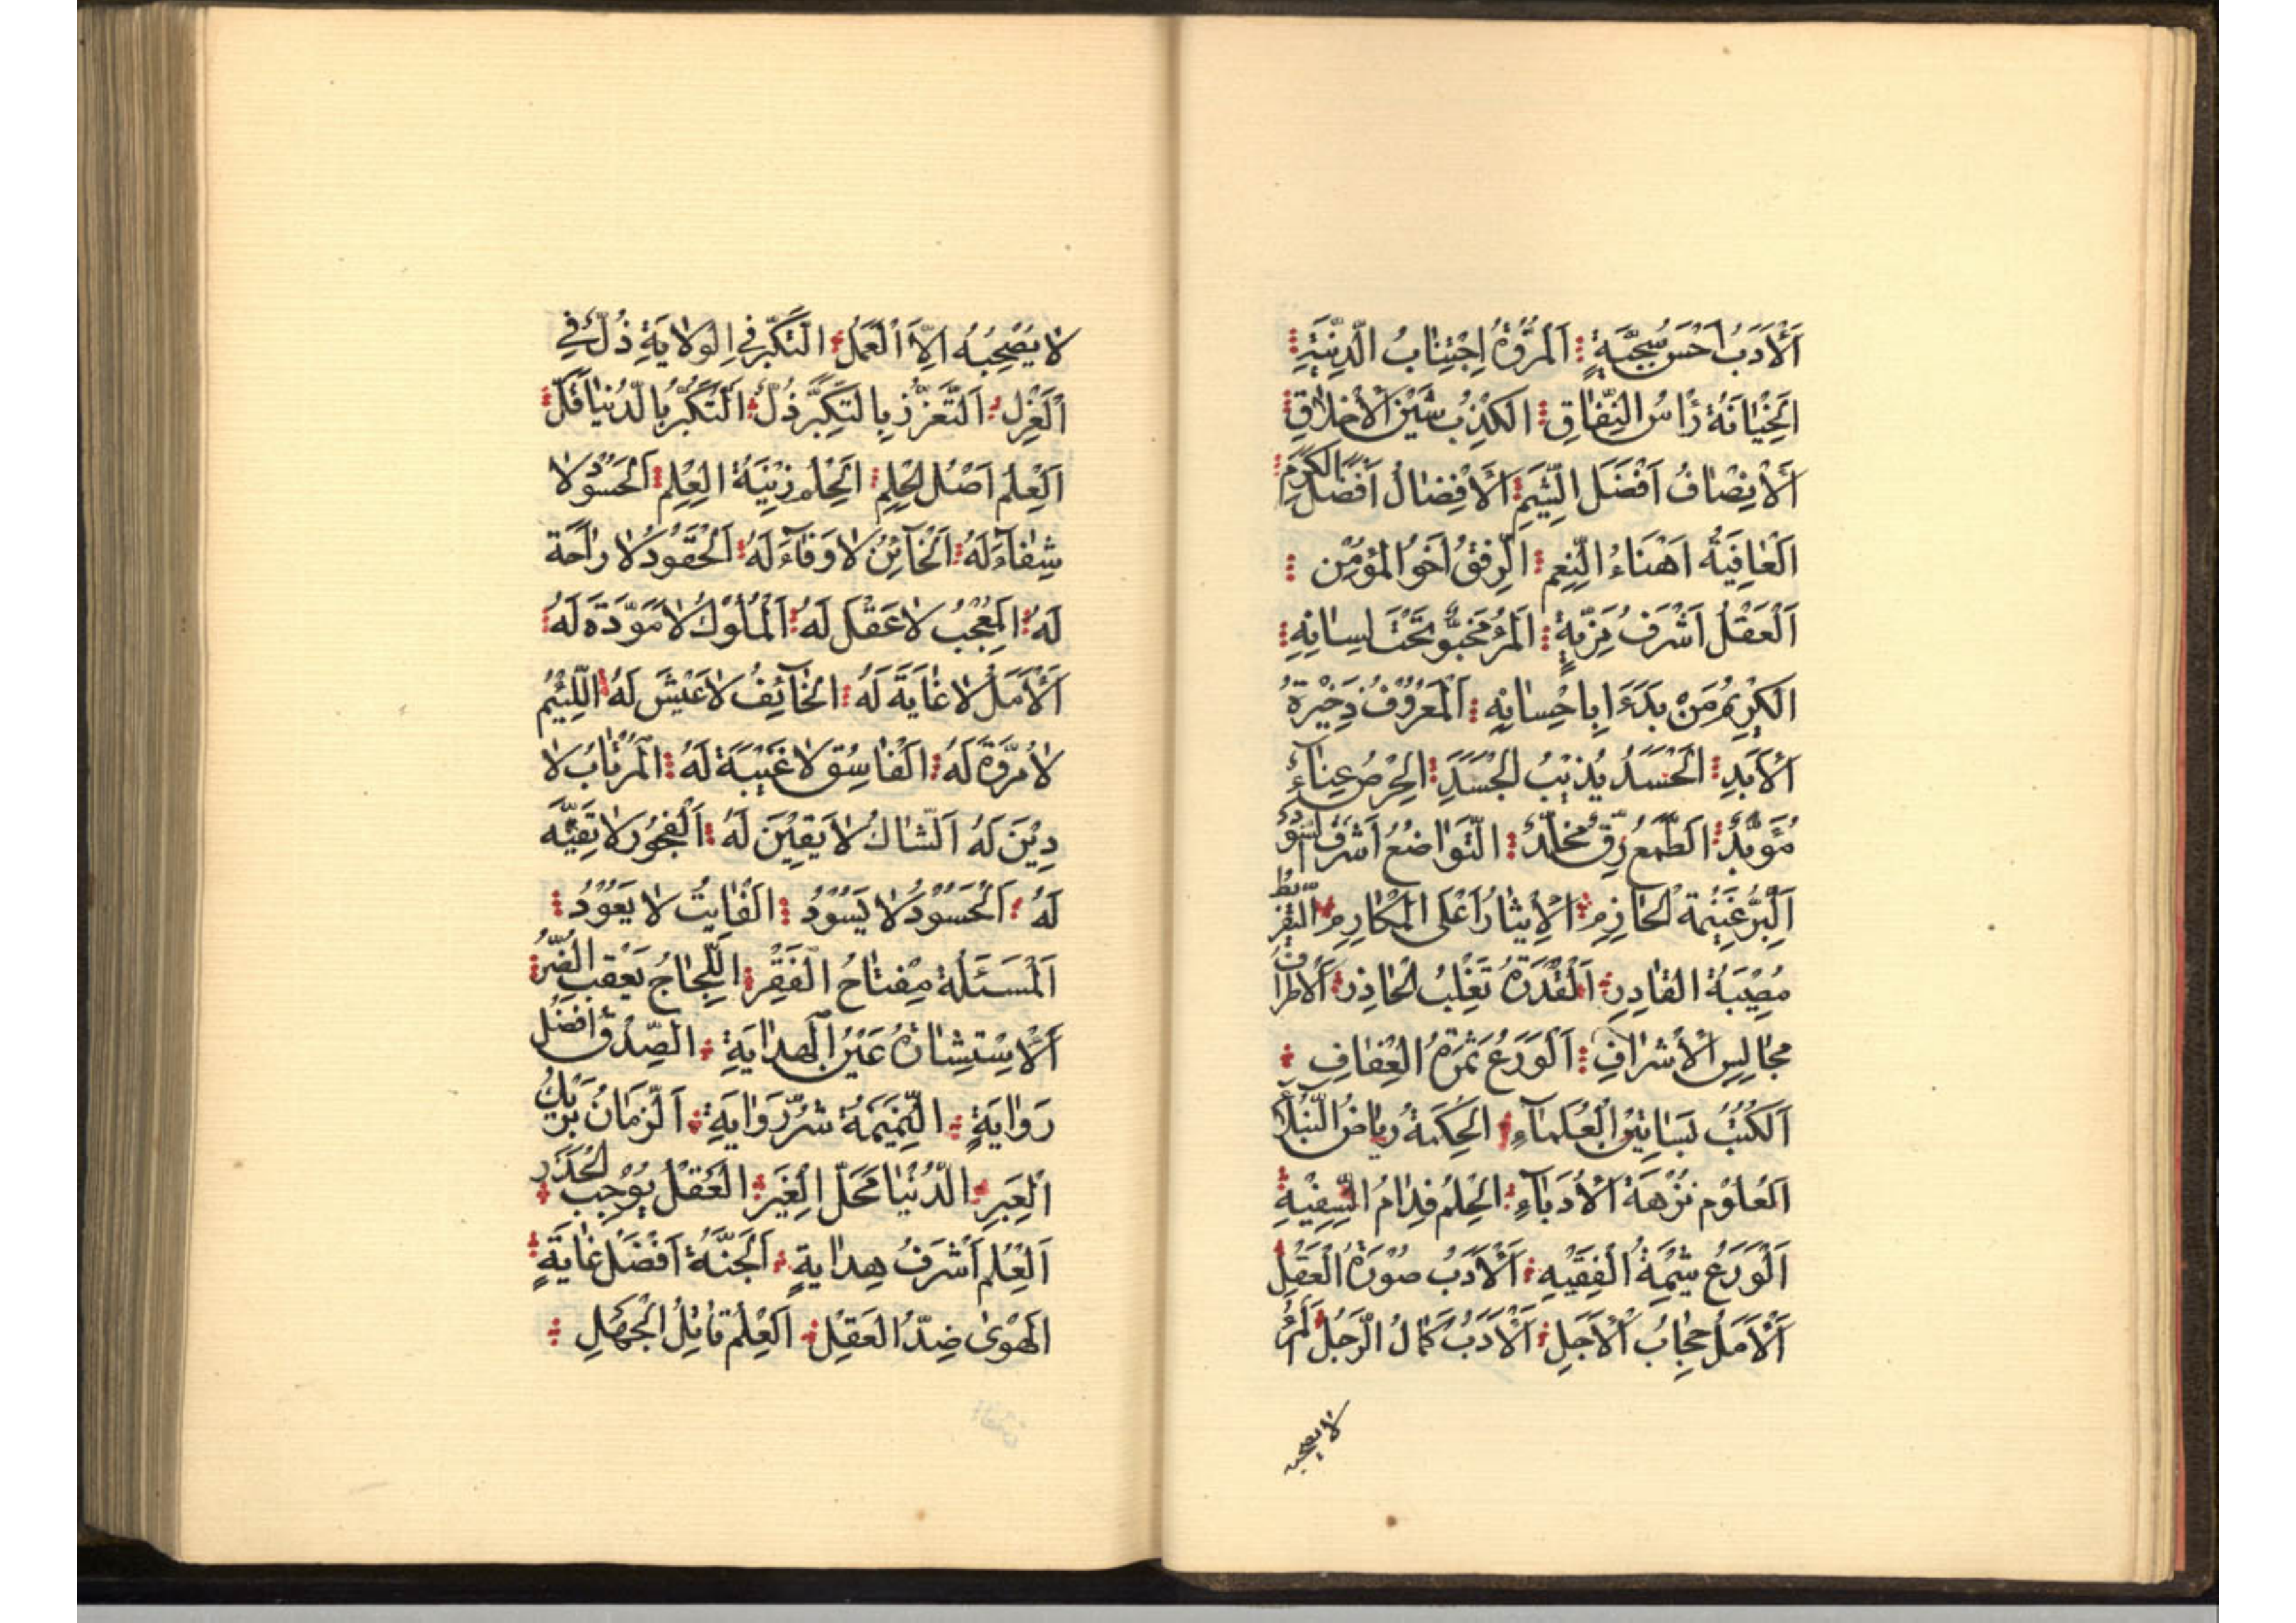 اَلْاَدَبُ اَحْسَنُ سَجِيَّةٍ اَلْمُرُوَّةُ اِجْتِنَابُ الدَّنِيَّةِ
اَلْخِيَانَةُ رَاْسُ النِّفَاقِ الْكِذْبُ شَيْنُ الْاَخْلَاقِ
اَلْاِنْصَافُ اَفْضَلُ الشِّيَمِ اَلْاِفْضَالُ اَفْضَلُ الْكَرَمِ
اَلْعَافِيَةُ اَهْنَاءُ النِّعَمِ الرِّفْقُ اَخُو الْمُؤْمِنِ
اَلْعَقْلُ اَشْرَفُ مَزِيَّةٍ اَلْمَرْءُ مَخْبُوٌّ تَحْتَ لِسَانِهِ
الْكَرِيْمُ مَنْ بَدَءَ بِاِحْسَانِهِ اَلْمَعْرُوْفُ ذَخِيْرَةُ
الْاَبَدِ الْحَسَدُ يُذِيْبُ الْجَسَدَ الْحِرْصُ عَنَاءٌ
مُؤَبَّدٌ الطَّمَعُ رِقٌّ مُخَلَّدٌ التَّوَاضُعُ اَشْرَفُ السُّوْدَدِ
اَلْبِرُّ غَنِيْمَةُ الْحَازِمِ الْاِيْثَارُ اَعْلَى الْمَكَارِمِ التَّفْرِيْطُ
مُصِيْبَةُ الْقَادِرِ اَلْقُدْرَةُ تَغْلِبُ الْحَاذِرَ اَلْاَطْرَافُ
مَجَالِسُ الْاَشْرَافِ اَلْوَرَعُ ثَمَرَةُ الْعَفَافِ
اَلْكُتُبُ بَسَاتِيْنُ الْعُلَمَآءِ الْحِكْمَةُ رِيَاضُ النُّبَلَاءِ
اَلْعُلُوْمُ نُزْهَةُ الْاُدَبَآءِ الْحِلْمُ فِدَامُ السَّفِيْهِ
اَلْوَرَعُ شِيْمَةُ الْفَقِيْهِ اَلْاَدَبُ صُوْرَةُ الْعَقْلِ
اَلْاَمَلُ حِجَابُ الْاَجَلِ اَلْاَدَبُ كَمَالُ الرَّجُلِ اَلْمَرْءُ
لا يصحبه
لَا يَصْحَبُهُ اِلَّا الْعَمَلُ اَلتَّكَبُّرُ فِي الْوِلَايَةِ ذُلٌّ فِي
الْعَزْلِ اَلتَّعَزُّزُ بِالتَّكَبُّرِ ذُلٌّ اَلتَّكَبُّرُ بِالدُّنْيَا قُلٌّ
اَلْعِلْمُ اَصْلُ الْحِلْمِ اَلْحِلْمُ زِيْنَةُ الْعِلْمِ اَلْحَسُوْدُ لَا
شِفَآءَ لَهُ اَلْخَآئِنُ لَا وَفَآءَ لَهُ اَلْحَقُوْدُ لَا رَاحَةَ
لَهُ الْمُعْجِبُ لَا عَقْلَ لَهُ اَلْمُلُوْكُ لَا مَوَدَّةَ لَهُ
اَلْاَمَلُ لَا غَايَةَ لَهُ الْخَآئِفُ لَا عَيْشَ لَهُ اللَّئِيْمُ
لَا مُرُوَّةَ لَهُ اَلْفَاسِقُ لَا غَيْبَةَ لَهُ الْمُرْتَابُ لَا
دِيْنَ لَهُ اَلشَّاكُ لَا يَقِيْنَ لَهُ اَلْفُجُوْرُ لَا تَقِيَّةَ
لَهُ اَلْحَسُوْدُ لَا يَسُوْدُ الْفَايِتُ لَا يَعُوْدُ
اَلْمَسْئَلَةُ مِفْتَاحُ الْفَقْرِ اللِّجَاجُ يَعْقِبُ الضُّرَّ
اَلْاِسْتِشَارَةُ عَيْنُ الْهِدَايَةِ الصِّدْقُ اَفْضَلُ
رِوَايَةٍ النَّمِيْمَةُ شَرُّ رِوَايَةٍ اَلزَّمَانُ يُرِيْكَ
الْعِبَرِ الدُّنْيَا مَحَلُّ الْغِيَرِ الْعَقْلُ يُوْجِبُ الْحَذَرَ
اَلْعِلْمُ اَشْرَفُ هِدَايَةٍ اَلْجَنَّةُ اَفْضَلُ غَايَةٍ
الْهَوٰى ضِدُّ الْعَقْلِ اَلْعِلْمُ قَاتِلُ الْجَهْلِ